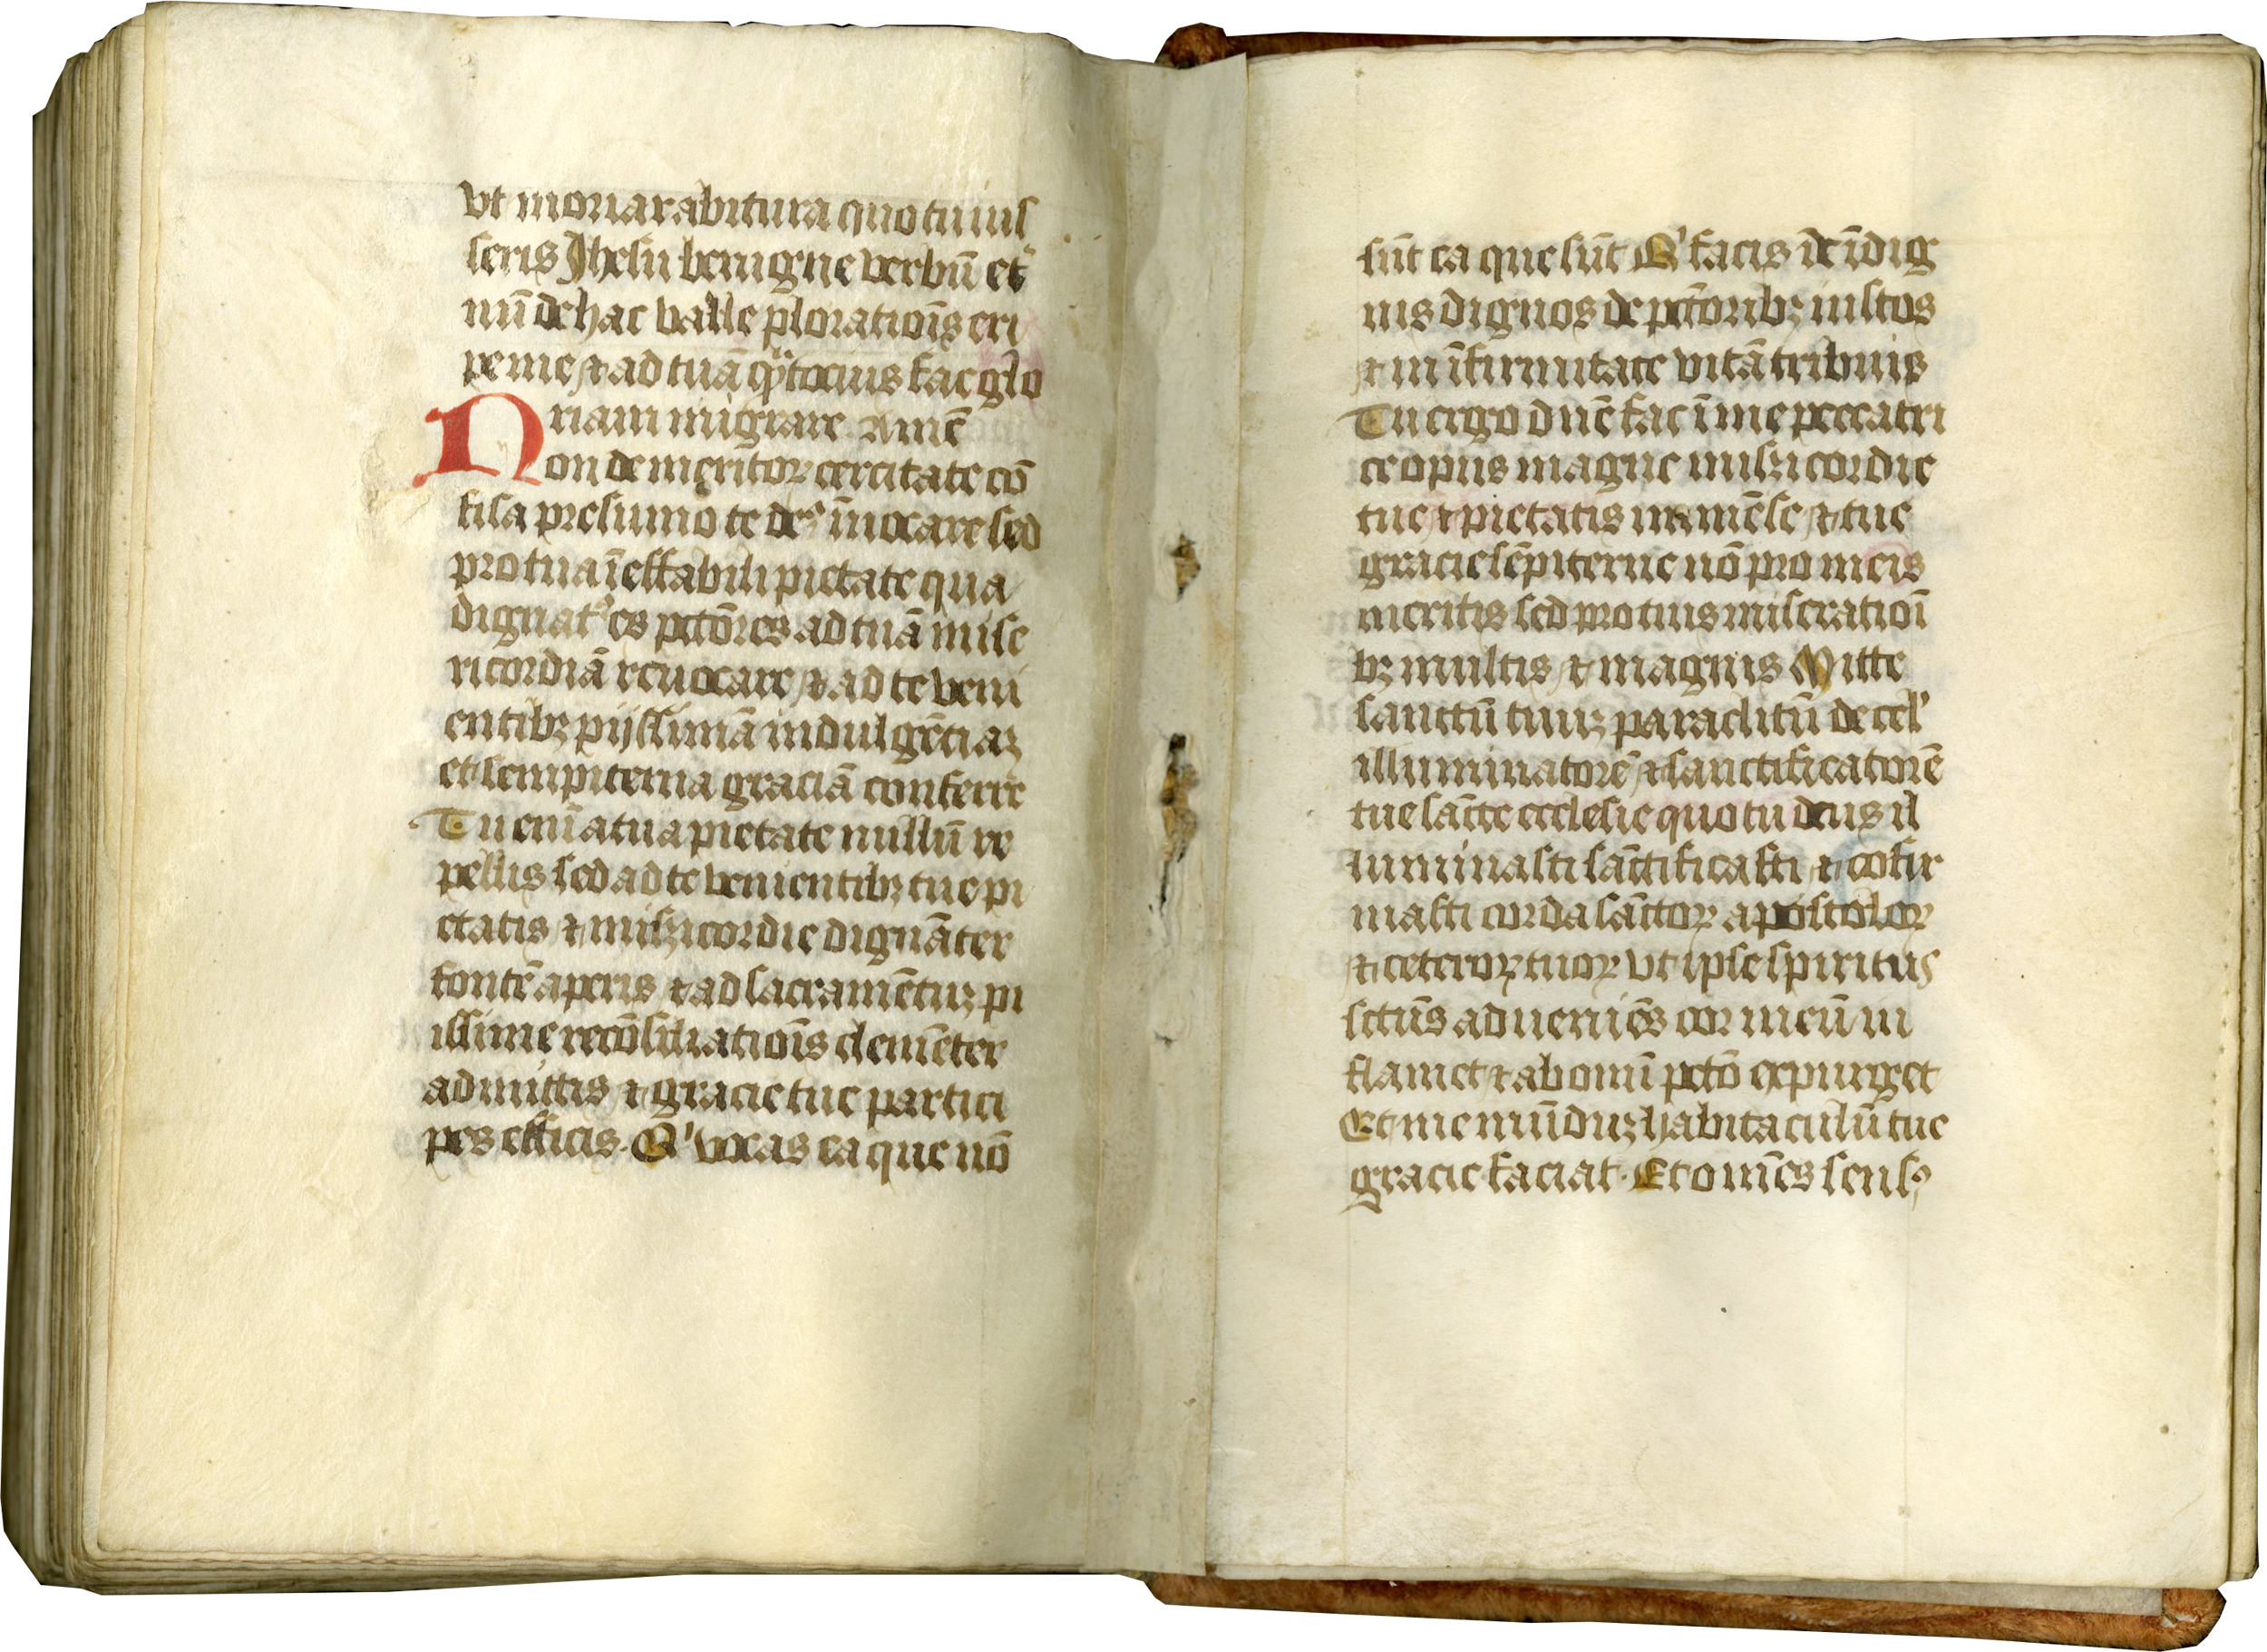 vt moriar abitura quo tu iuſ
ſeris Jheſu benigne verbū et̾
nū de hac valle ploratiōis eri
pe me ⁊ ad tuā qͣ̈tocius fac glo
riam migrare. Amē
Non de meritoꝝ cercitate cō
fisa preſumo te deꝰ īuocare ſed
pro tua īeffabili pietate qua
dignatꝰ es pctōres ad tuā miſe
ricordiā reuocare ⁊ ad te veni
entibꝫ pijſſimā indulgētiaꝫ
et ſempiterna graciā conferre
Tu enī a tua pietate nullū re
pellis ſed ad te venientibꝫ tue pi
etatis ⁊ miſꝫicordie dignāter
fontē aperis ⁊ ad ſacramētuꝫ pi
iſſime recōſiliatiōis clemēter
admittis ⁊ gracie tue partici
pes efficis. Qͥ vocas ea que nō
ſūt ea que ſūt Qͥ facis de īdig
nis dignos de pctōribꝫ iuſtos
⁊ in īfirmitate vitā tribuis
Tu ergo dn̄e fac ī me peccatri
ce opus magne miſꝫicordie
tue ⁊ pietatis immēſe ⁊ tue
gracie ſēpiterne nō pro meis
meritis ſed pro tuis miſeratiōi
bꝫ multis ⁊ magnis Mitte
ſanctū tuuꝫ paraclitū de cel'
illuminatorē ⁊ ſanctificatorē
tue sāctē eccleſie quo tu deus il
luminaſti ſāctificaſti ⁊ cōfir
maſti corda ſāctoꝝ apoſtoloꝝ
⁊ ceteroꝝ tuoꝝ vt ipſe ſpiritus
ſctūs adueniēs cor meū in
flamet ⁊ ab omī pctō expurget
Et me mūduꝫ habitaculū tue
gracie faciat. Et omēs ſenſꝰ